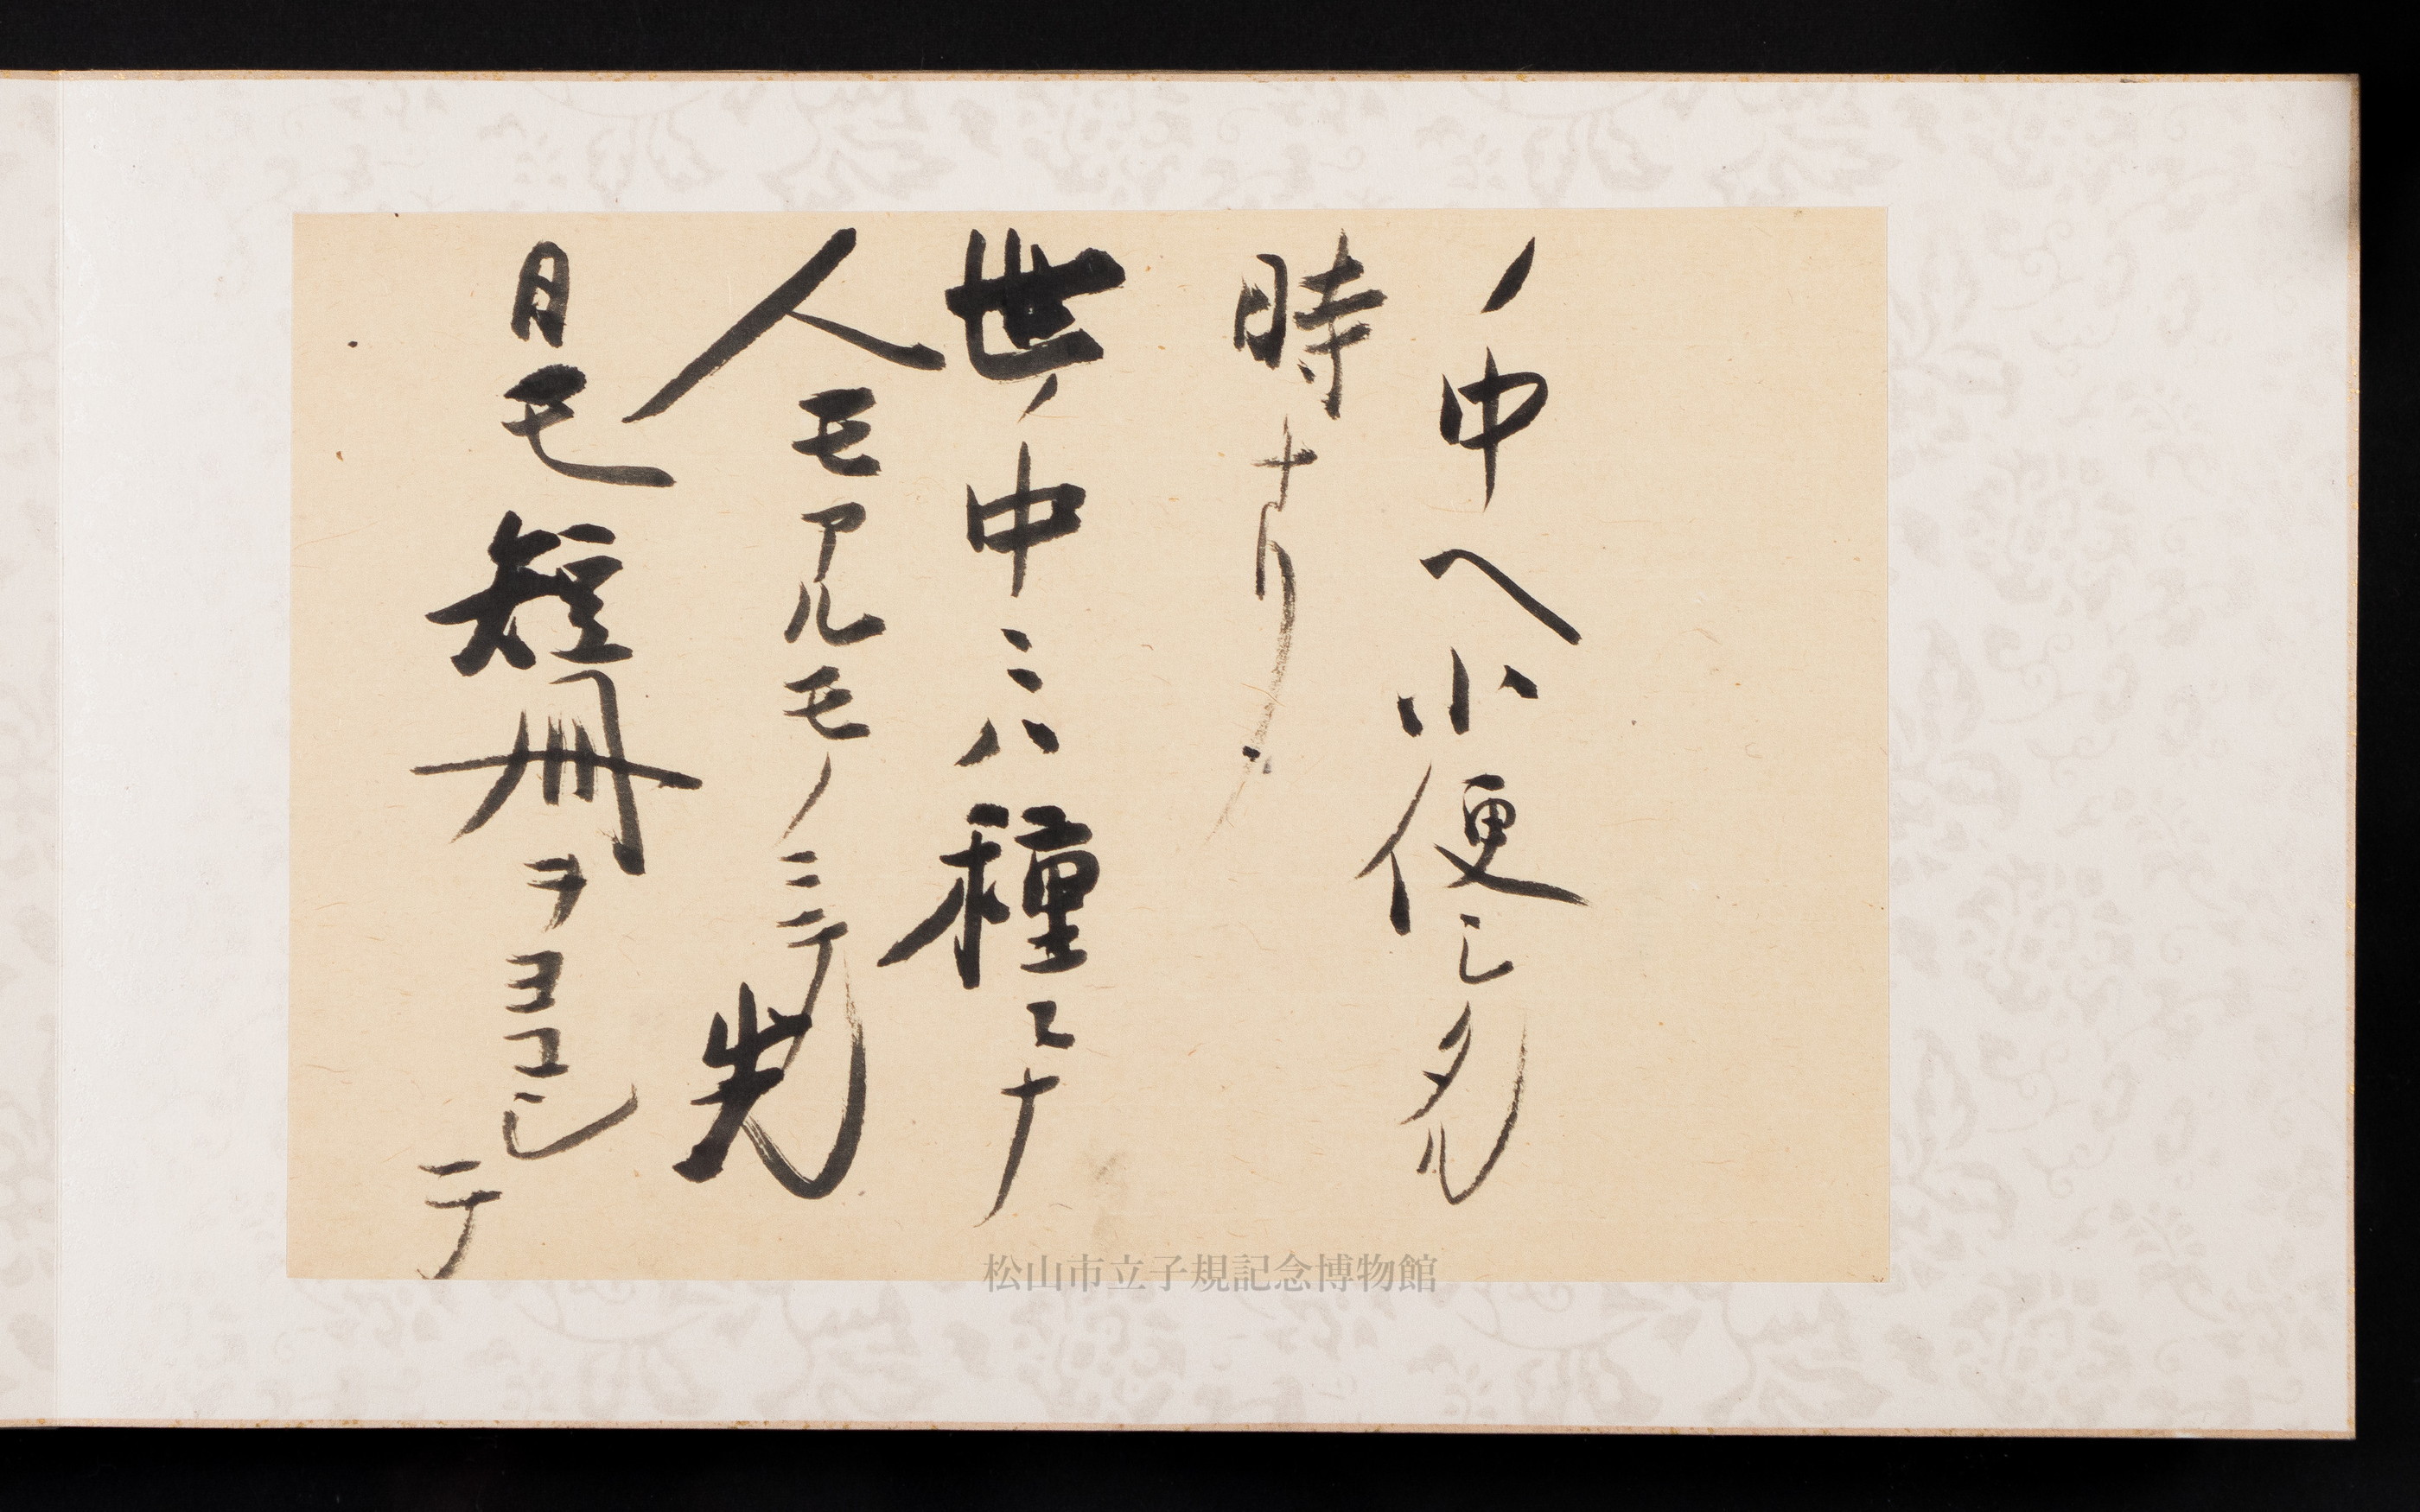 ノ中ヘ小便シタル
時ナリ
世ノ中ニハ種々ナ
人モアルモノニテ先
月モ短冊ヲヨコシ
テ
松山市立子規記念博物館